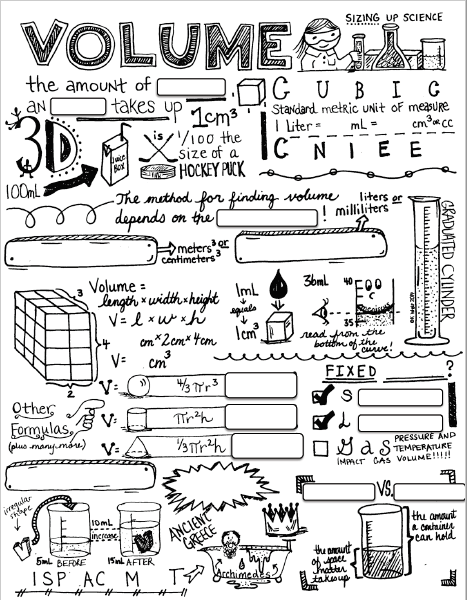 VOLUME
SIZING UP SCIENCE
the amount of
an takes up
1cm³
CUBIC
Standard metric unit of measure
1 Liter = mL = cm³ or cc
1 C N I E E
3D
JUICE BOX
100mL
is
1/100 the
size of a
HOCKEY PUCK
The method for finding volume
depends on the !
liters or
milliliters
meters³ or
centimeters³
GRADUATED CYLINDER
Volume =
length × width × height
V = l × w × h
cm × 2cm × 4cm
V = cm³
3
4
2
1mL
equals
1cm³
36mL
40
35
read from the
bottom of the
curve!
Other
Formulas
(plus many more)
V= 4/3 πr³
V= πr²h
V= 1/3 πr²h
FIXED ?
S
L
Gas
PRESSURE AND
TEMPERATURE
IMPACT GAS VOLUME!!!!!
irregular
shape
5mL BEFORE
10mL
increase
15mL AFTER
ISP AC M T
ANCIENT
GREECE
Archimedes
VS.
the amount
a container
can hold
the amount
of space
matter
takes up